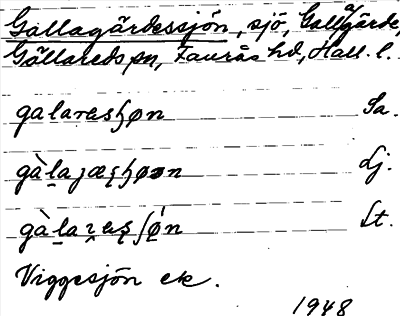 Gallagärdessjön, sjö, Gallagärde,
Gällareds sn, Faurås hd, Hall. l.
galaɾesɧøn Sa.
gàlajæʂɧøn Lj.
gàlaɾeʂʃǿn Lt.
Viggesjön ek.
1948